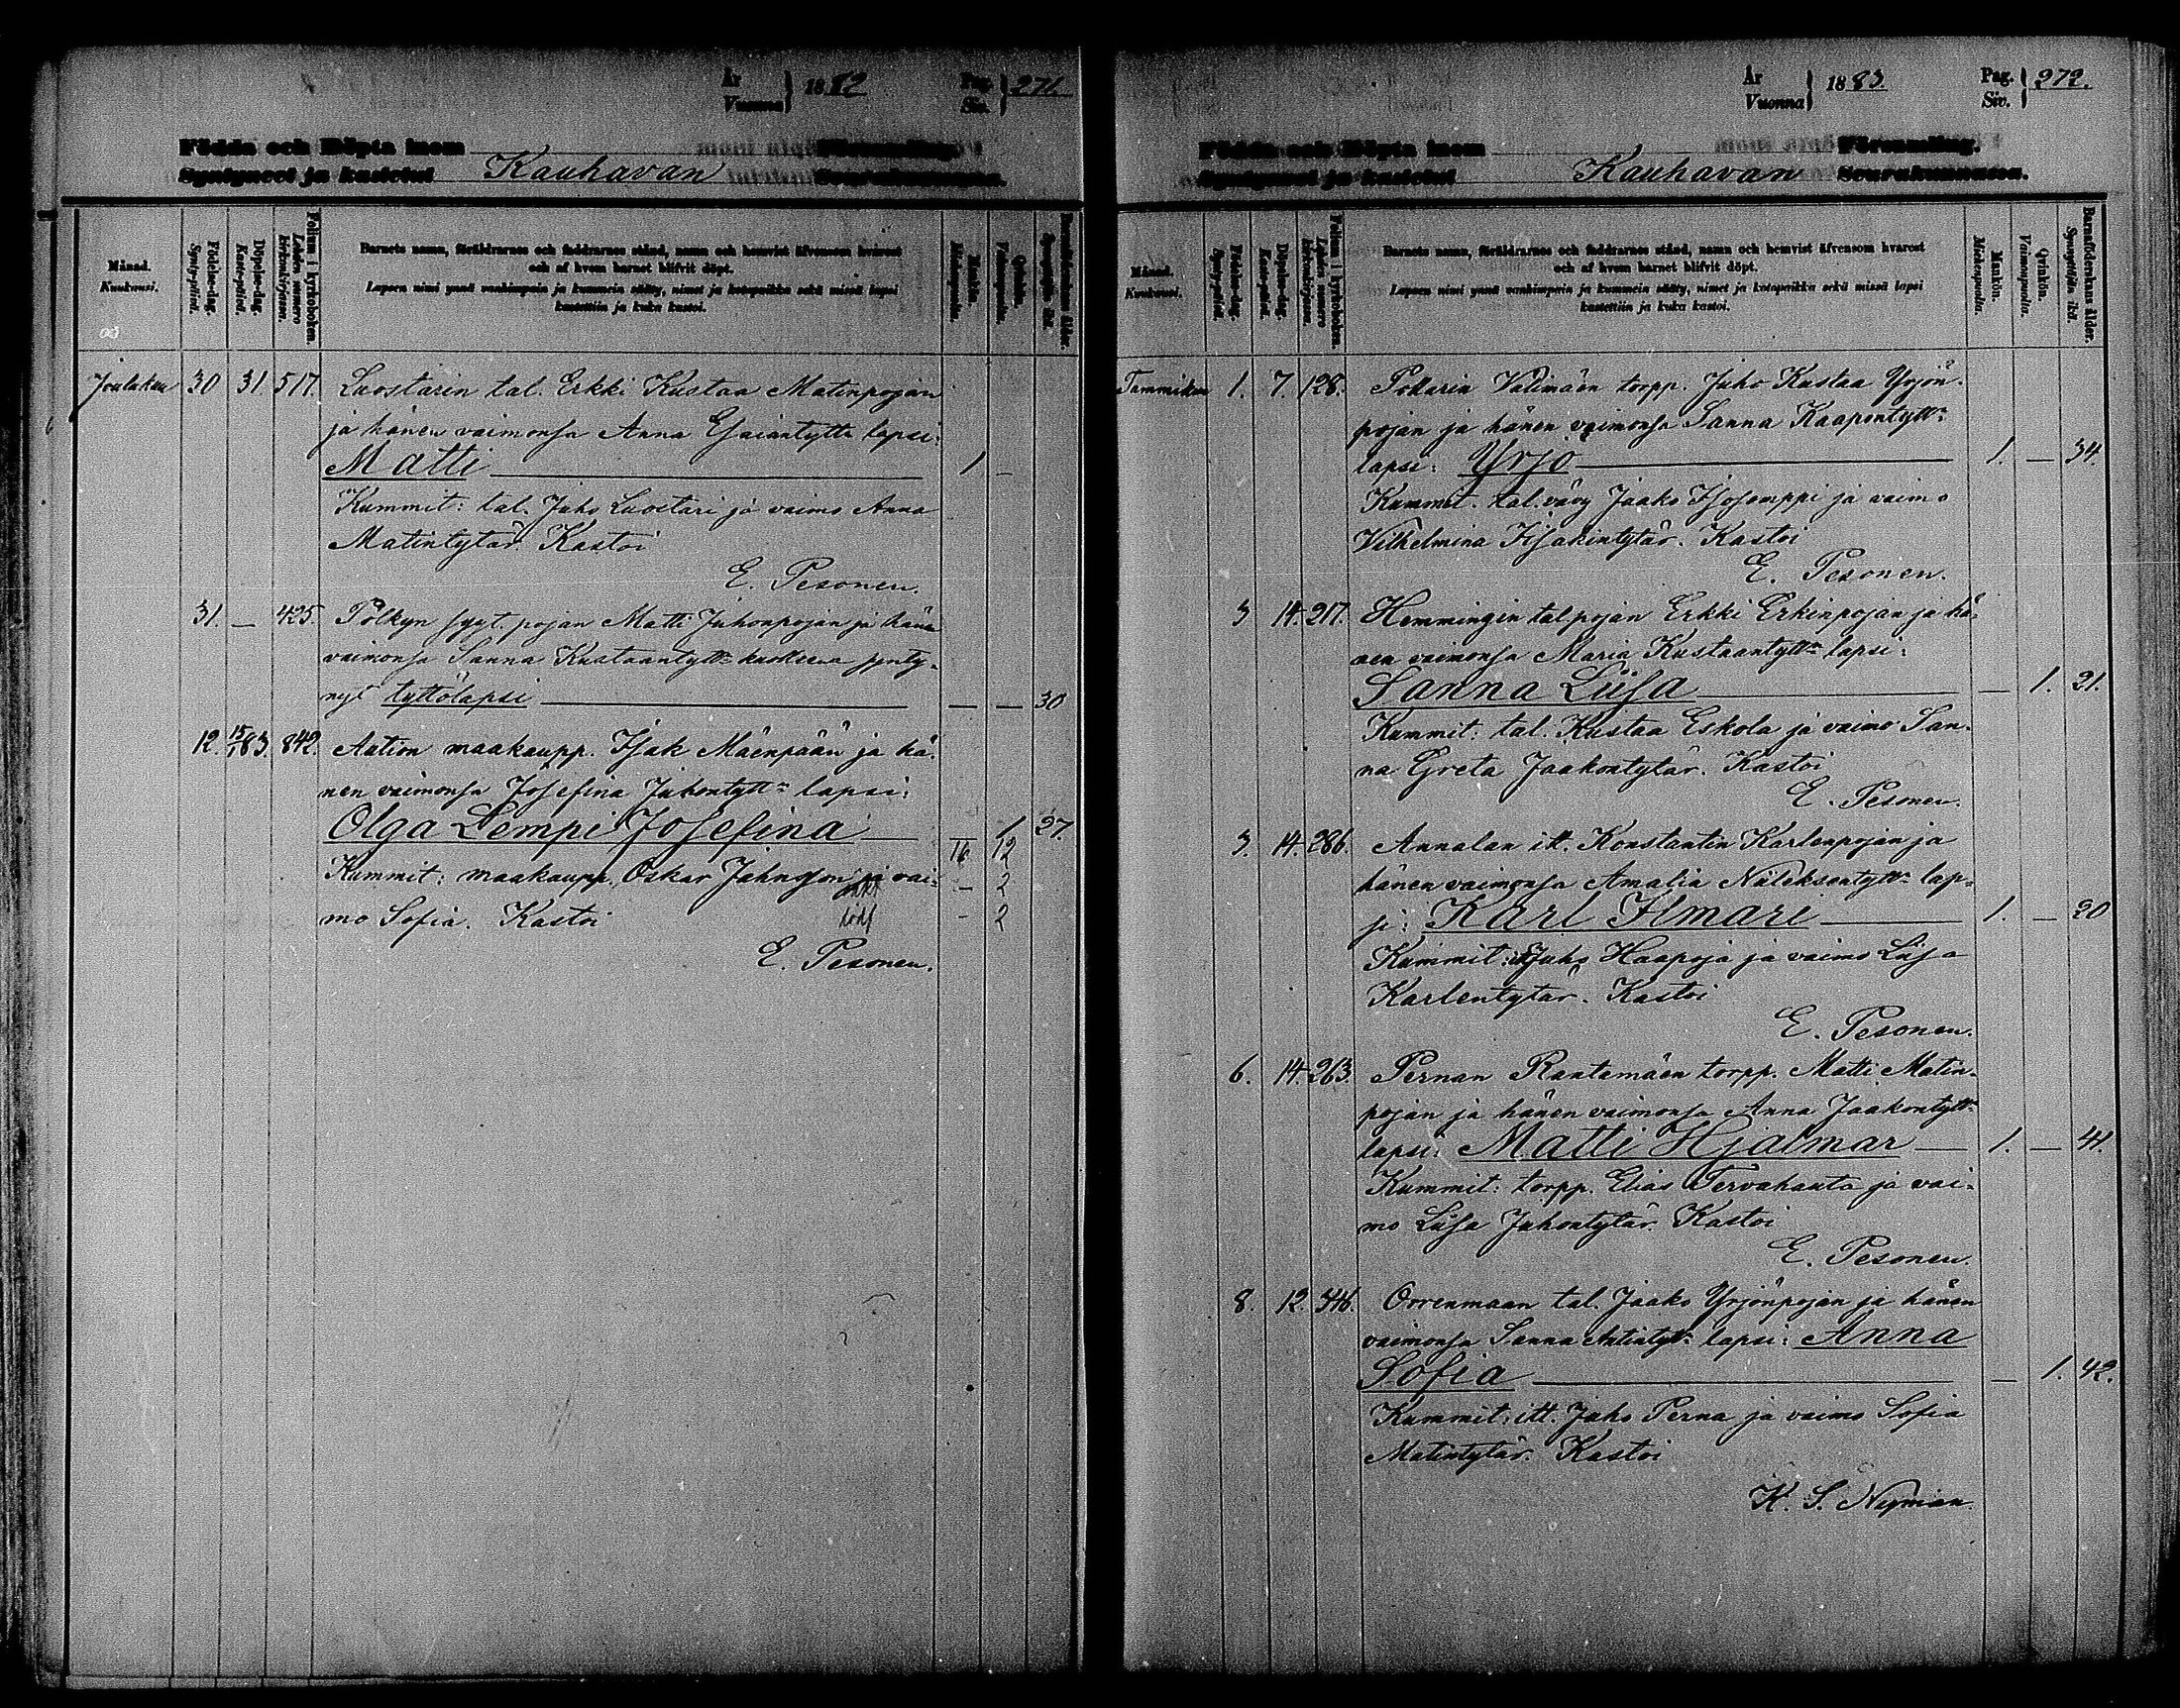 År
Vuonna } 1882 Pag.
Siv. } 271
Födda och Döpta inom
Syntyneet ja kastetut Kauhavan Församling.
Seurakunnassa.
Månad.
Kuukausi.
Födelse-dag.
Synty-päivä.
Döpelse-dag.
Kaste-päivä.
Folium i kyrkoboken.
Lehden numero kirkonkirjassa.
Barnets namn, föräldrarnes och faddrarnes stånd, namn och hemvist äfvensom hvarest
och af hvem barnet blifvit döpt.
Lapsen nimi ynnä vanhimpain ja kummein sääty, nimet ja kotopaikka sekä missä lapsi
kastettiin ja kuka kastoi.
Mankön.
Miehenpuolia.
Qvinkön.
Vaimonpuolia.
Barnaföderskans ålder.
Synnyttäjän ikä.
Jouluken 30 31. 517. Luostarin tal. Erkki Kustaa Matinpojan
ja hänen vaimonsa Anna Esaiantytt. lapsi:
Matti 1 —
Kummit: tal. Juho Luostari ja vaimo Anna
Matintytär. Kastoi
E. Pesonen.
31. — 425. Pölkyn syyt. pojan Matti Juhonpojan ja hänen
vaimonsa Sanna Kustaantytt:n kuolleena synty-
nyt tyttölapsi — — 30
12. 15/1 83. 842. Aution maakaupp. Isak Mäenpään ja hä-
nen vaimonsa Josefina Juhontytt:n lapsi:
Olga Lempi Josefina — 1 27.
16 12
Kummit: maakaupp. Oskar Johnsson ja vai- — 2
mo Sofia. Kastoi död — 2
E. Pesonen.
År
Vuonna } 1883. Pag.
Siv. } 272.
Födda och Döpta inom
Syntyneet ja kastetut Kauhavan Församling.
Seurakunnassa.
Månad.
Kuukausi.
Födelse-dag.
Synty-päivä.
Döpelse-dag.
Kaste-päivä.
Folium i kyrkoboken.
Lehden numero kirkonkirjassa.
Barnets namn, föräldrarnes och faddrarnes stånd, namn och hemvist äfvensom hvarest
och af hvem barnet blifvit döpt.
Lapsen nimi ynnä vanhimpain ja kummein sääty, nimet ja kotopaikka sekä missä lapsi
kastettiin ja kuka kastoi.
Mankön.
Miehenpuolia.
Qvinkön.
Vaimonpuolia.
Barnaföderskans ålder.
Synnyttäjän ikä.
Tammikuu 1. 7. 128. Pottarin Välimäen torpp. Juho Kustaa Yrjön-
pojan ja hänen vaimonsa Sanna Kaapontytt:n
lapsi: Yrjö 1. — 34.
Kummit. tal. vävy Jaako Isosomppi ja vaimo
Vilhelmina Iisakintytär. Kastoi
E. Pesonen.
3 14. 217. Hemmingin tal pojan Erkki Erkinpojan ja hä-
nen vaimonsa Maria Kustaantytt:n lapsi:
Sanna Liisa — 1. 21.
Kummit: tal. Kustaa Eskola ja vaimo San-
na Greta Jaakontytär. Kastoi
E. Pesonen.
3. 14. 286. Annalan itt. Konstantin Karlenpojan ja
hänen vaimonsa Amalia Niileksentytt:n lap-
si: Karl Ilmari 1. — 20
Kummit: Juho Haapoja ja vaimo Liisa
Karlentytär. Kastoi
E. Pesonen.
6. 14. 263. Pernan Rantamäen torpp. Matti Matin-
pojan ja hänen vaimonsa Anna Jaakontytt:n
lapsi: Matti Hjalmar 1. — 41.
Kummit: torpp. Elias Tervahauta ja vai-
mo Liisa Juhontytär. Kastoi
E. Pesonen.
8. 12. 346. Orrenmaan tal. Jaako Yrjönpojan ja hänen
vaimonsa Sanna Antintytt:n lapsi: Anna
Sofia — 1. 42.
Kummit: itt. Juho Perna ja vaimo Sofia
Matintytär. Kastoi
K. S. Nyman.